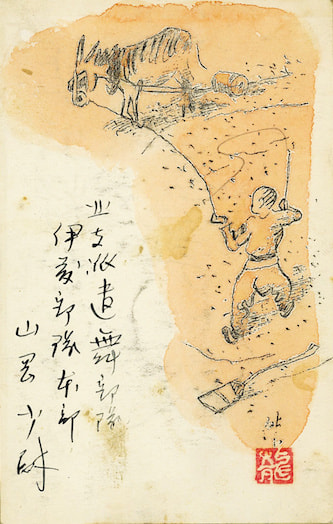 北支派遣舞部隊
伊藤部隊本部
山岡少尉
龍